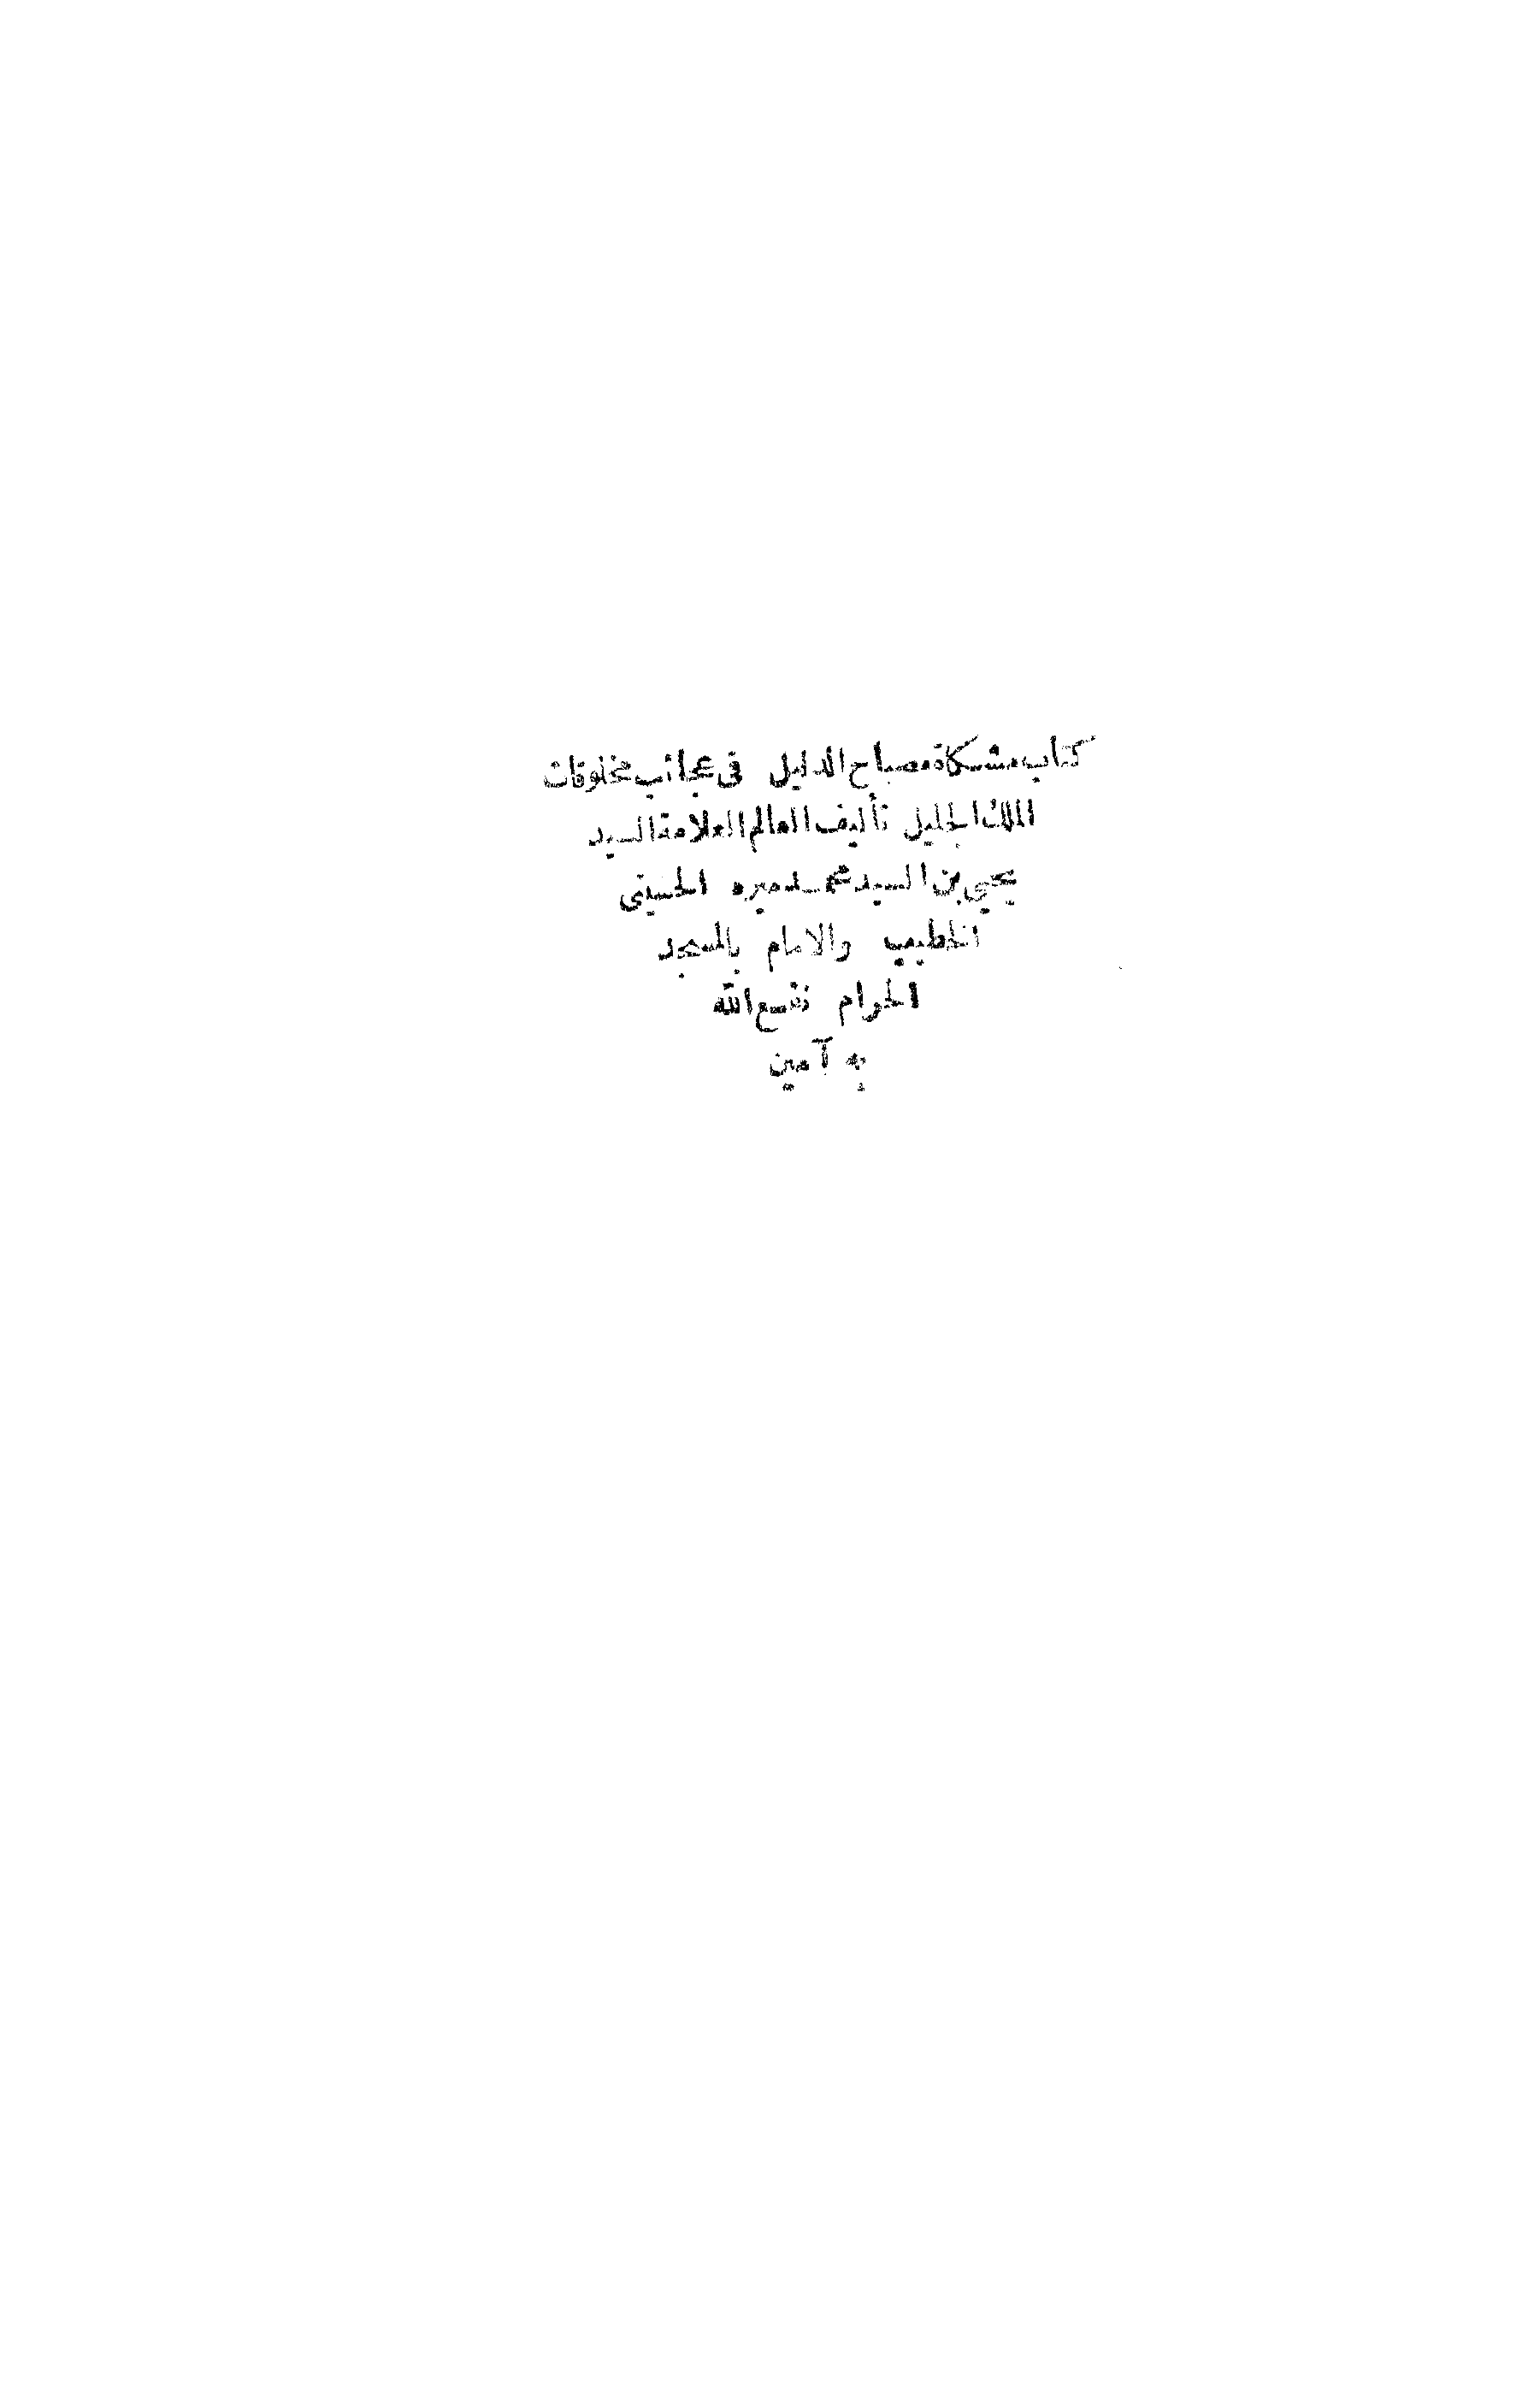 كتاب مشكاة مصباح الدليل في عجائب مخلوقات
الملك الجليل تأليف العالم العلامة السيد
يحيى بن السيد محمد ميره الحسيني
الخطيب والامام بالمسجد
الحرام نفع الله
به آمين